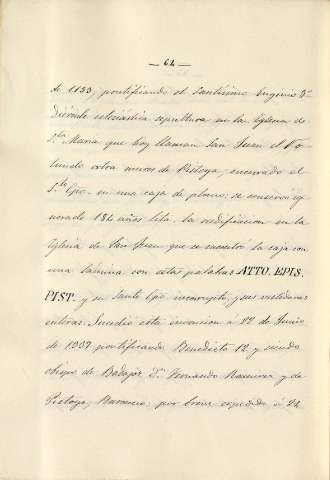 — 62 —
de 1153, pontificando el santísimo Eugenio 3º
Diéronle eclesiástica sepultura en la Iglesia de
Sta. Maria que hoy llaman San Juan el Ro-
tundo extra muros de Pistoya, encerrado el
Sto. Cpo. en una caja de plomo; se conservó ig-
norado 184 años hta. la reedificacion en la
Iglesia de San Juan que se encontró la caja con
una lámina con estas palabras ATTO. EPIS.
PIST. y su santo Cpo. incorrupto, y sus vestiduras
enteras. Sucedió esta invencion á 22 de Junio
de 1337 pontificando Benedicto 12 y siendo
obispo de Badajoz Dn. Fernando Ramirez y de
Pistoya, Baroncio: por breve expedido á 24